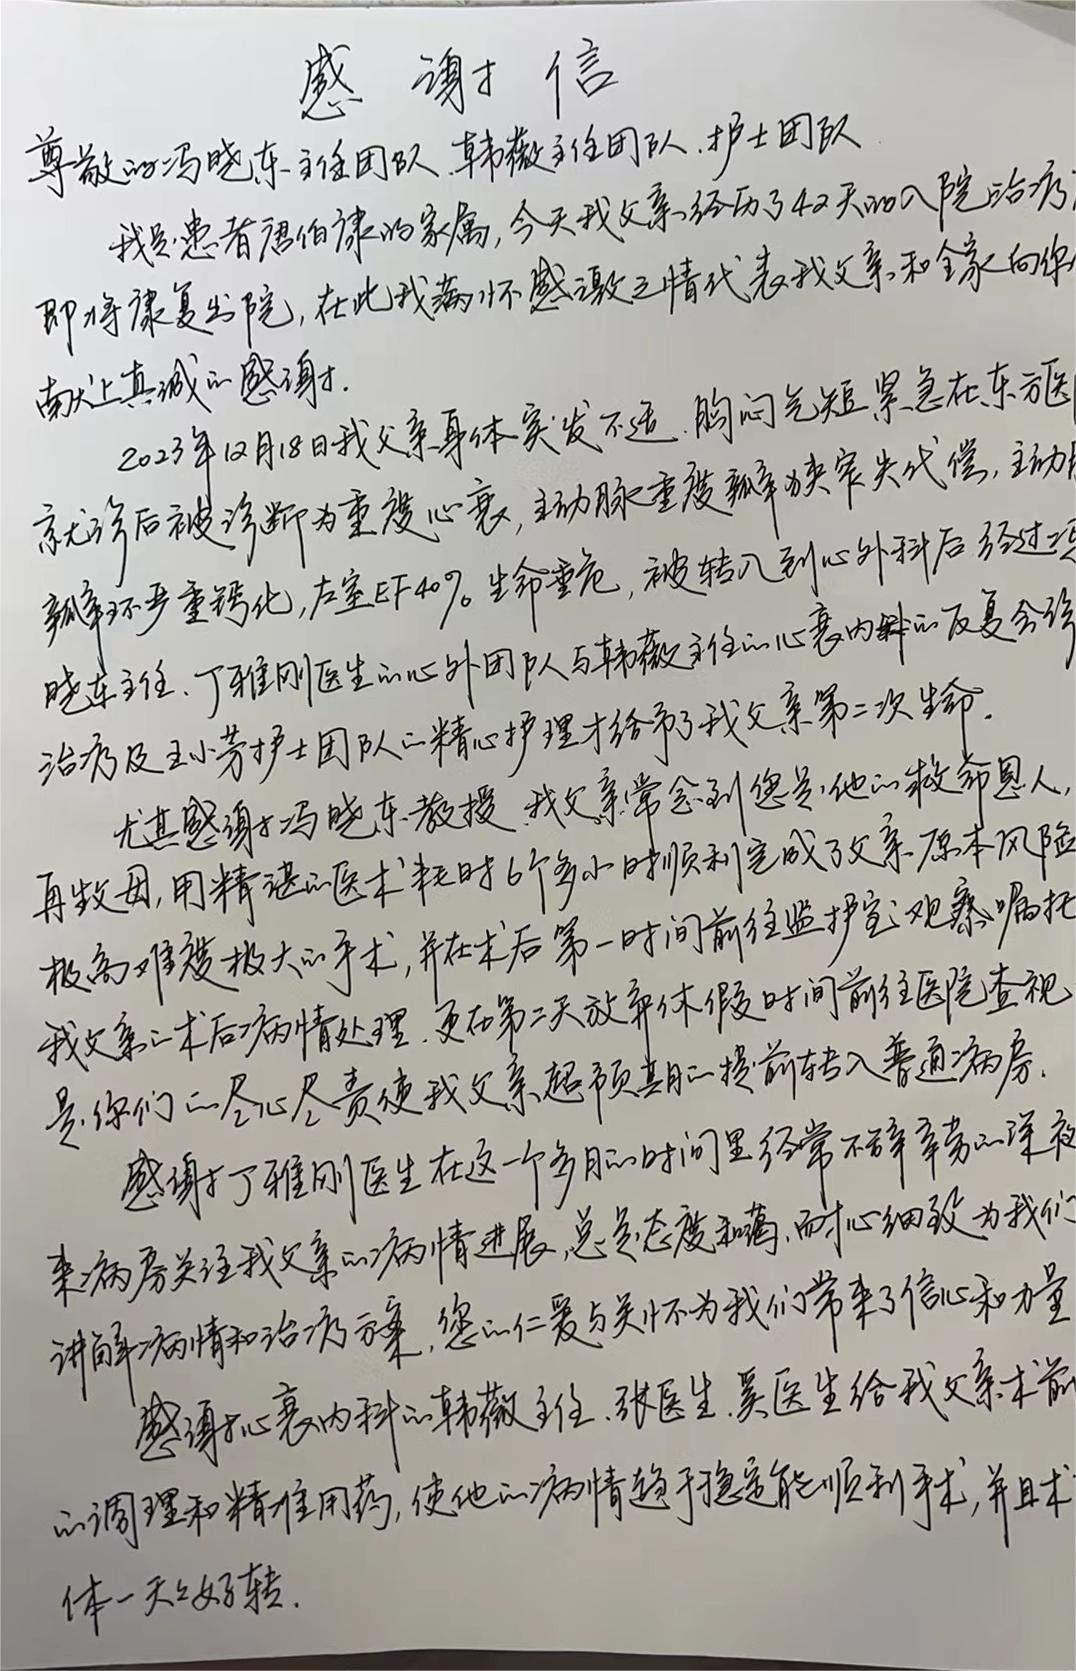 感谢信
尊敬的冯晓东主任团队、韩薇主任团队、护士团队
我是患者唐伯康的家属,今天我父亲经历了42天的入院治疗
即将康复出院,在此我满怀感激之情代表我父亲和全家向你
献上真诚的感谢.
2023年12月18日我父亲身体突发不适、胸闷气短紧急在东方医
就诊后被诊断为重度心衰,主动脉重度瓣狭窄失代偿,主动
瓣环严重钙化,左室EF40%。生命垂危,被转入到心外科后经过冯
晓东主任、丁雅刚医生的心外团队与韩薇主任的心衰内科的反复会诊
治疗及王小芳护士团队的精心护理才给予了我父亲第二次生命.
尤其感谢冯晓东教授、我父亲常念到您是他的救命恩人,
再生父母,用精湛的医术耗时6个多小时顺利完成了父亲原本风险
极高难度极大的手术,并在术后第一时间前往监护室观察嘱托
我父亲的术后病情处理.更在第二天放弃休假时间前往医院查视
是你们的尽心尽责使我父亲超预期的提前转入普通病房.
感谢丁雅刚医生在这一个多月的时间里经常不辞辛劳的深夜
来病房关注我父亲的病情进展,总是态度和蔼、耐心细致为我们
讲解病情和治疗方案,您的仁爱与关怀为我们带来了信心和力量
感谢心衰内科的韩薇主任、张医生、吴医生给我父亲术前
的调理和精准用药,使他的病情趋于稳定能顺利手术,并且术
体一天天好转.